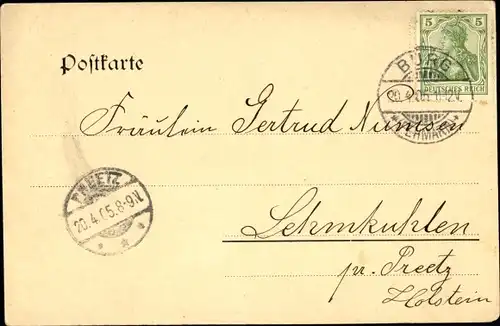 Postkarte
5 5
DEUTSCHES REICH
BURG
20.4.05.
* FEHMARN *
Fräulein Gertrud Numsen
PREETZ
20.4.05.8-9.N.
* * *
Lehmkuhlen
pr. Preetz
Holstein